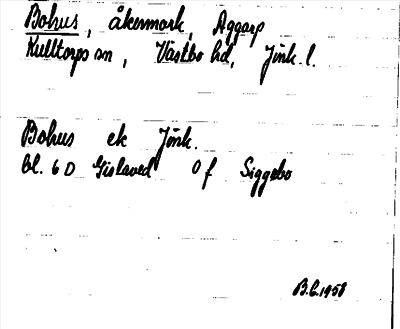 Bohus, åkermark, Aggarp
Kulltorps sn, Västbo hd, Jönk. l.
Bohus ek Jönk.
bl. 6 D Gislaved 0 f Siggebo
B.L. 1958